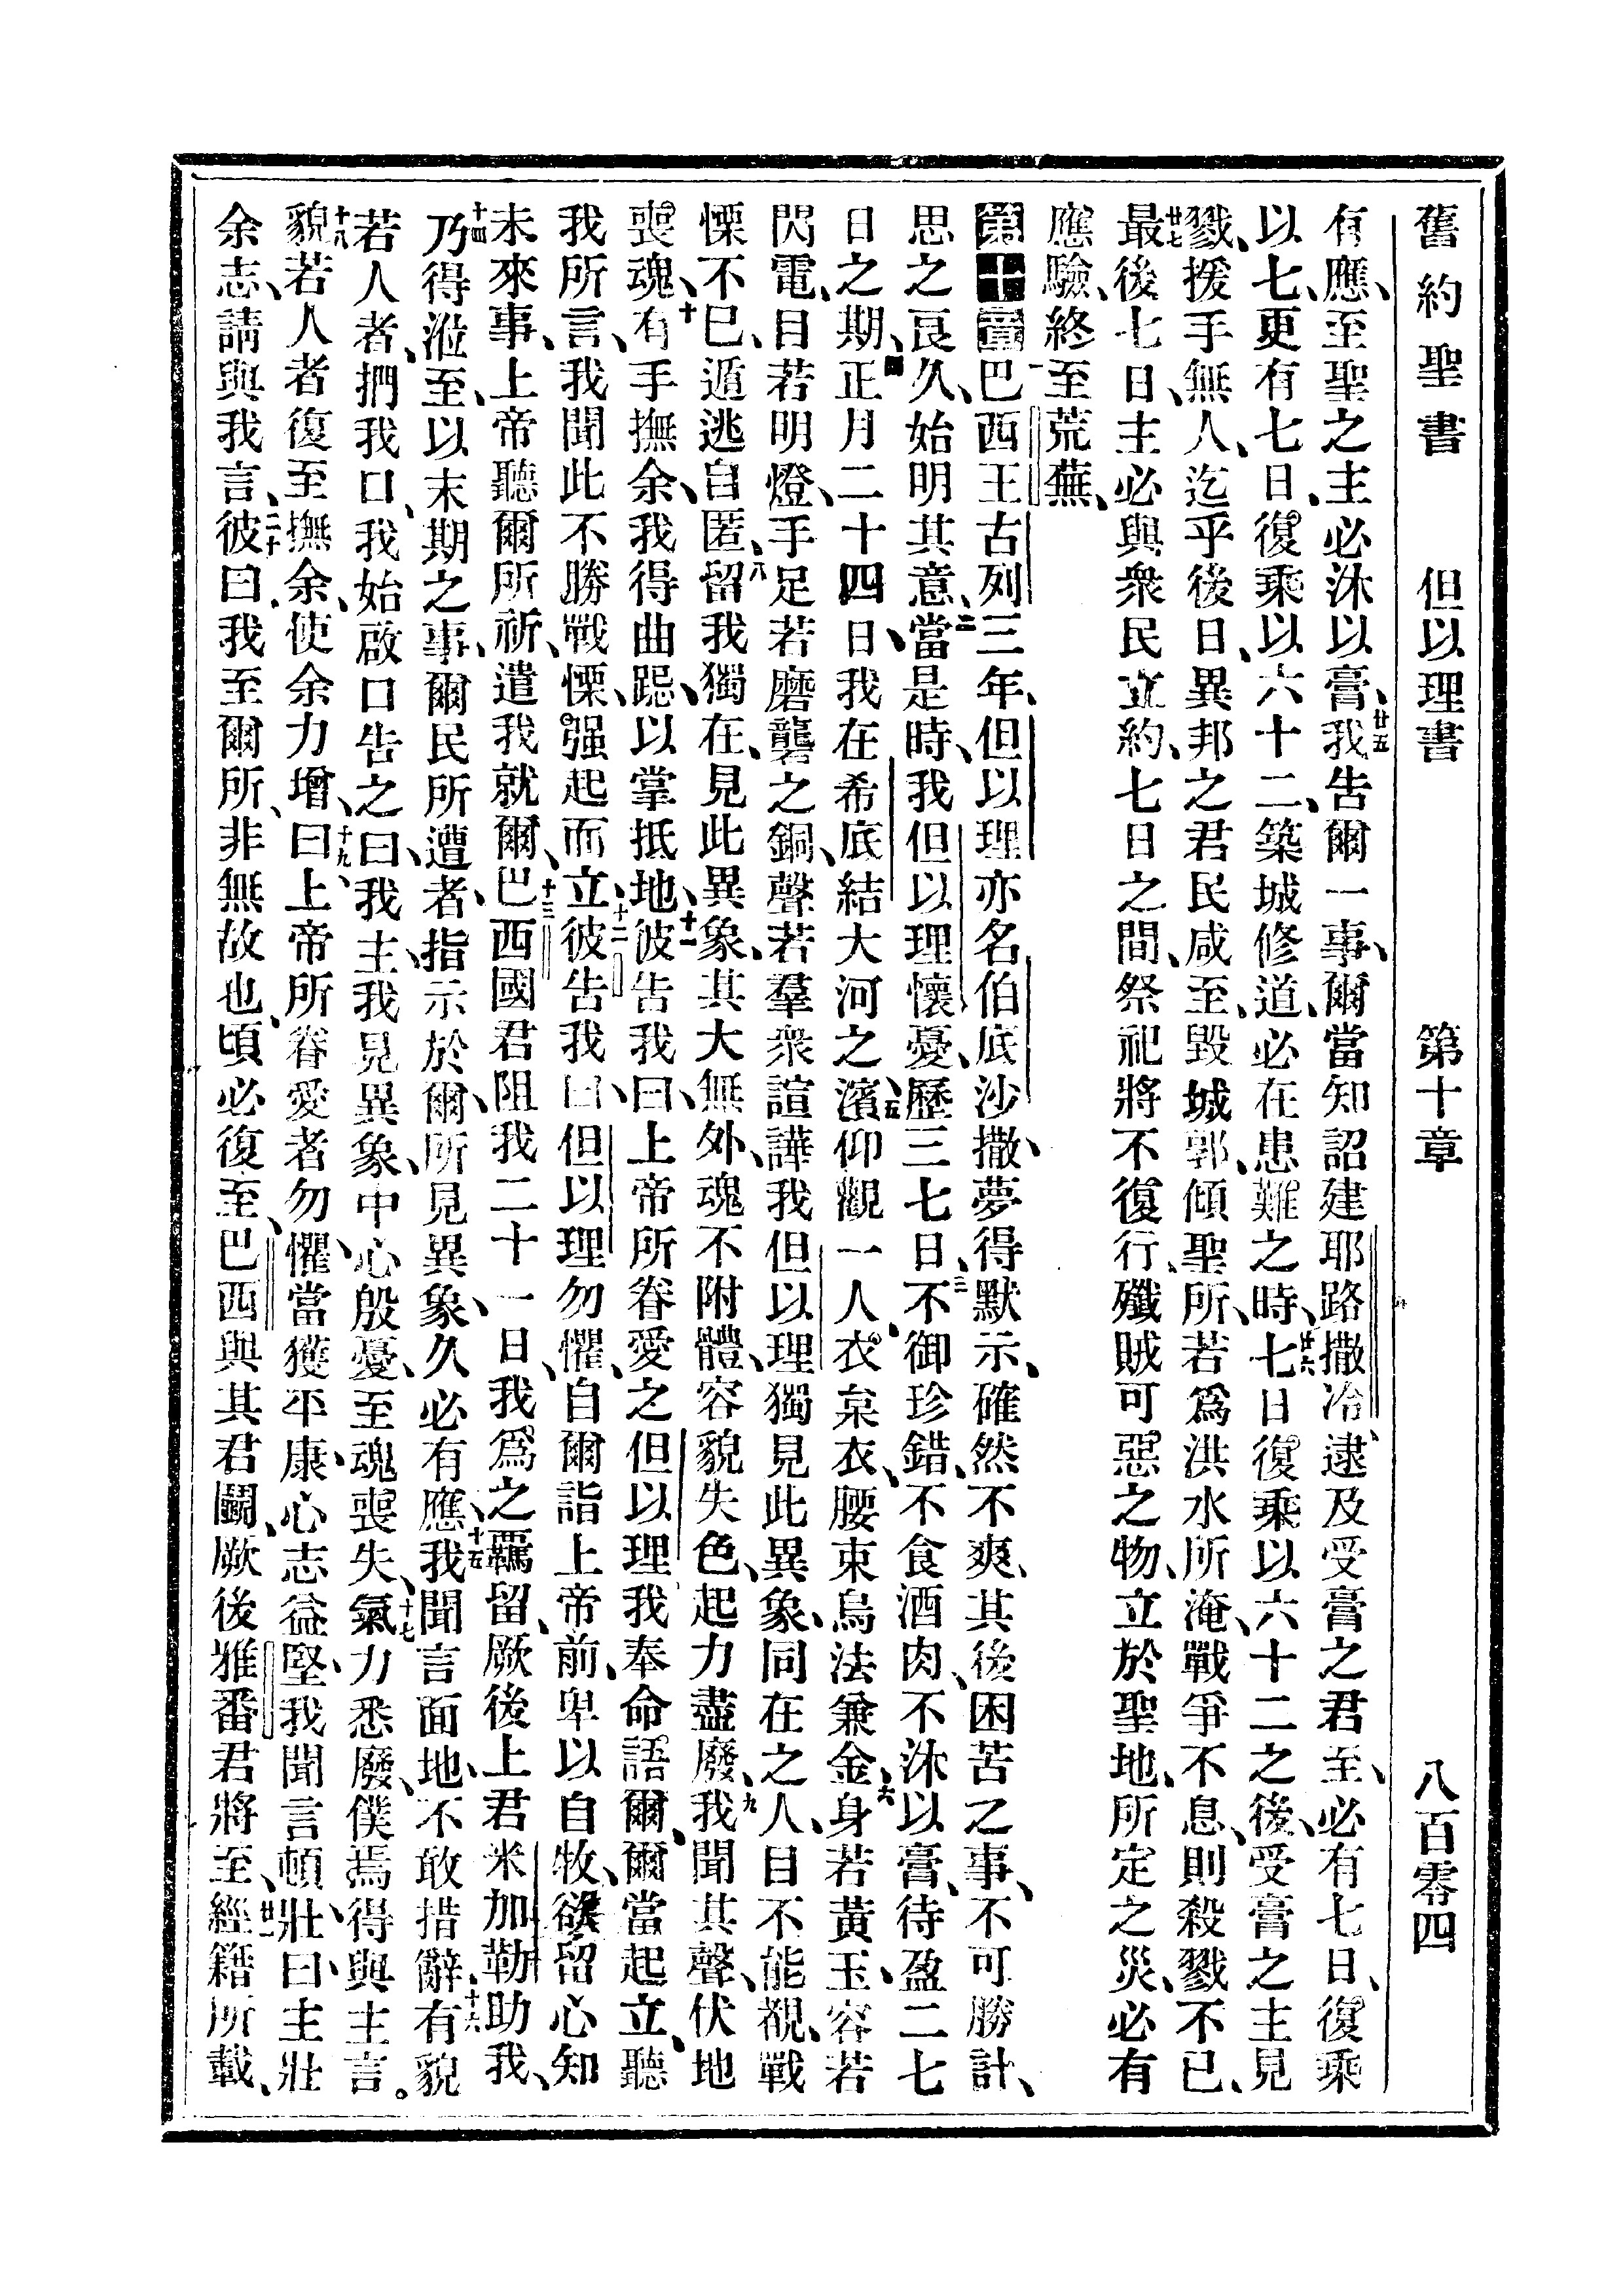 舊約聖書　但以理書　第十章　八百零四
有應、至聖之主必沐以膏、廿五我告爾一事、爾當知詔建耶路撒冷、逮及受膏之君至、必有七日、復乘
以七、更有七日、復乘以六十二、築城修道、必在患難之時、廿六七日復乘以六十二之後、受膏之主見
戮、援手無人、迄乎後日、異邦之君民咸至、毀城郭、傾聖所、若爲洪水所淹、戰爭不息、則殺戮不已、
廿七最後七日、主必與衆民立約、七日之間、祭祀將不復行、殲賊可惡之物、立於聖地、所定之災、必有
應驗、終至荒蕪、
第十章一巴西王古列三年、但以理亦名伯底沙撒、夢得默示、確然不爽、其後困苦之事、不可勝計、
思之良久、始明其意、二當是時、我但以理懷憂、歷三七日、三不御珍錯、不食酒肉、不沐以膏、待盈二七
日之期、四正月二十四日、我在希底結大河之濱、五仰觀一人、衣枲衣、腰束烏法兼金、六身若黃玉、容若
閃電、目若明燈、手足若磨礱之銅、聲若羣衆諠譁、我但以理獨見此異象、同在之人、目不能覩、戰
慄不已、遁逃自匿、八留我獨在、見此異象、其大無外、魂不附體、容貌失色、起力盡廢、九我聞其聲、伏地
喪魂、十有手撫余、我得曲跽、以掌抵地、十一彼告我曰、上帝所眷愛之但以理、我奉命語爾、爾當起立、聽
我所言、我聞此不勝戰慄、强起而立、十二彼告我曰、但以理勿懼、自爾詣上帝前、卑以自牧、欲留心知
未來事、上帝聽爾所祈、遣我就爾、十三巴西國君阻我二十一日、我爲之羈留、厥後上君米加勒助我、
十四乃得涖至、以末期之事、爾民所遭者、指示於爾、所見異象、久必有應、十五我聞言面地、不敢措辭、十六有貌
若人者、捫我口、我始啟口告之曰、我主、我見異象、中心殷憂、至魂喪失、氣力悉廢、十七僕焉得與主言。
十八貌若人者復至撫余、使余力增、十九曰、上帝所眷愛者勿懼、當獲平康、心志益堅、我聞言頓壯、曰、主壯
余志、請與我言、二十彼曰、我至爾所、非無故也、頃必復至、巴西與其君鬭、厥後雅番君將至、廿一經籍所載、